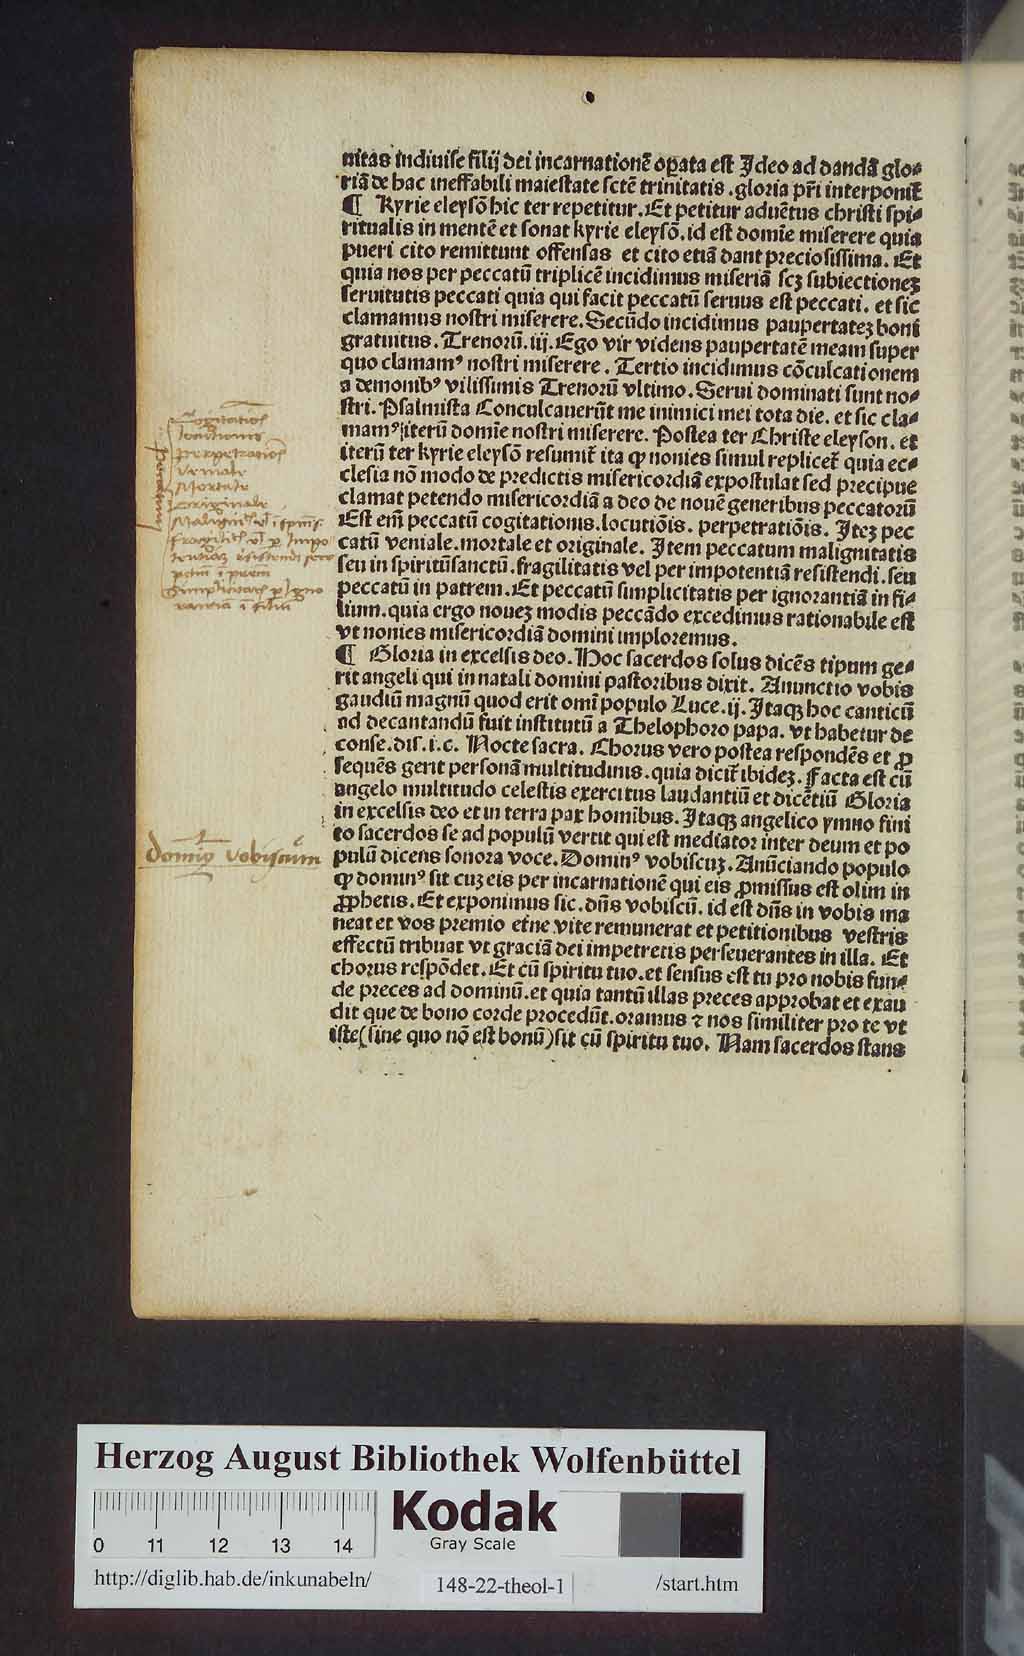 nitas indiuise filij dei incarnationē oꝑata est Jdeo ad dandā glo⸗
riā de hac ineffabili maiestate sctē trinitatis .gloria pr̄i interponit̄
¶ Kyrie eleysō hic ter repetitur. Et petitur aduētus christi spi⸗
ritualis in mentē et sonat kyrie eleysō. id est domīe miserere quia
pueri cito remittunt offensas et cito etiā dant preciosissima. Et
quia nos per peccatū triplicē incidimus miseriā scꝫ subiectioneꝫ
seruitutis peccati quia qui facit peccatū seruus est peccati. et sic
clamamus nostri miserere. Secūdo incidimus paupertateꝫ boni
gratuitus. Trenorū. iij. Ego vir videns paupertatē meam super
quo clamamꝰ nostri miserere . Tertio incidimus cōculcationem
a demonibꝰ vilissimis Trenorū vltimo. Serui dominati sunt no⸗
stri. Psalmista Conculcauerūt me inimici mei tota die. et sic cla⸗
mamꝰ iterū domīe nostri miserere. Postea ter Christe eleyson. et
iterū ter kyrie eleysō resumit̄ ita ꝙ nonies simul replicet̄ quia ec⸗
clesia nō modo de predictis misericordiā expostulat sed precipue
clamat petendo misericordiā a deo de nouē generibus peccatorū
Est em̄ peccatū cogitationis. locutiōis. perpetratiōis. Jteꝫ pec
catū veniale. mortale et originale. Jtem peccatum malignitatis
seu in spiritūsanctū. fragilitatis vel per impotentiā resistendi. seu
peccatū in patrem. Et peccatū simplicitatis per ignorantiā in fi⸗
lium. quia ergo noueꝫ modis peccādo excedimus rationabile est
vt nonies misericordiā domini imploremus.
¶ Gloria in excelsis deo. Hoc sacerdos solus dicēs tipum ge⸗
rit angeli qui in natali domini pastoribus dixit. Anunctio vobis
gaudiū magnū quod erit om̄i populo Luce. ij. Jtaqꝫ hoc canticū
ad decantandū fuit institutū a Thelophoro papa. vt habetur de
conse. dis. i. c. Nocte sacra. Chorus vero postea respondēs et ꝓ
sequēs gerit personā multitudinis. quia dicit̄ ibideꝫ. Facta est cū
angelo multitudo celestis exercitus laudantiū et dicētiū Gloria
in excelsis deo et in terra pax homibus. Jtaqꝫ angelico ymno fini
to sacerdos se ad populū vertit qui est mediator inter deum et po
pulū dicens sonora voce. Dominꝰ vobiscuꝫ. Anūciando populo
ꝙ dominꝰ sit cuꝫ eis per incarnationē qui eis ꝓmissus est olim in
ꝓphetis. Et exponimus sic. dn̄s vobiscū. id est dn̄s in vobis ma
neat et vos premio etn̄e vite remunerat et petitionibus vestris
effectū tribuat vt graciā dei impetretis perseuerantes in illa. Et
chorus respōdet. Et cū spiritu tuo. et sensus est tu pro nobis fun⸗
de preces ad dominū. et quia tantū illas preces approbat et exau
dit que de bono corde procedūt. oramus ⁊ nos similiter pro te vt
iste (sine quo nō est bonū) sit cū spiritu tuo. Nam sacerdos stans
Cogitatiōis
locutionis
perpetratiōis
veniale
Mortale
Originale
Dominꝰ vobiscum
Herzog August Bibliothek Wolfenbüttel
Kodak
Gray Scale
0 11 12 13 14
http://diglib.hab.de/inkunabeln/ 148-22-theol-1 /start.htm